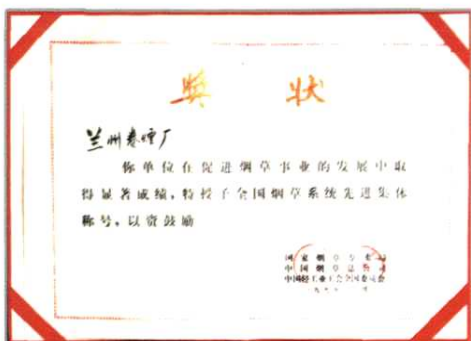 奖 状
兰州卷烟厂
你单位在促进烟草事业的发展中取
得显著成绩，特授予全国烟草系统先进集体
称号，以资鼓励
国家烟草专卖局
中国烟草总公司
中国轻工业工会全国委员会